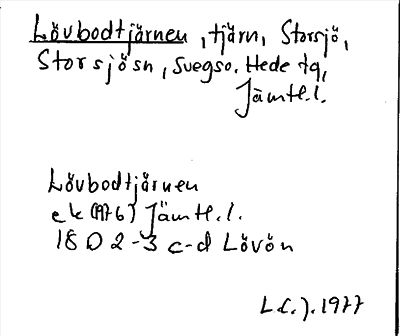 Lövbodtjärnen, tjärn, Storsjö,
Storsjösn, Svegso. Hede tg,
Jämtl.l.
Lövbodtjärnen
ek (1976) Jämtl.l.
18 D 2-3 c-d Lövön
L.C.J. 1977